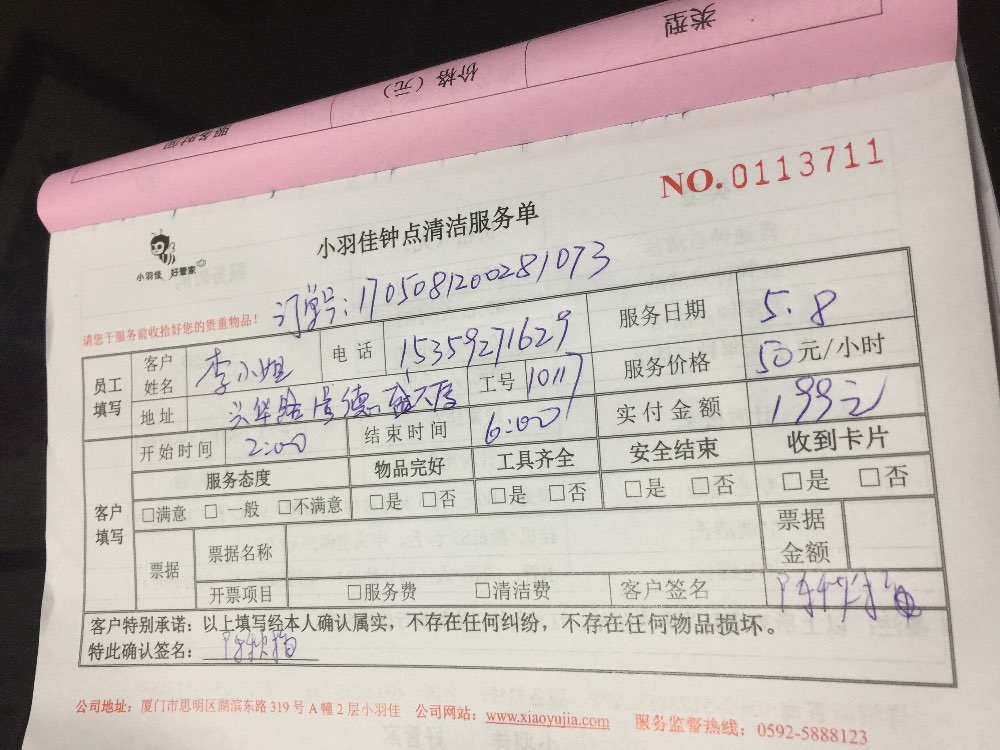 类型
价格（元）
服务时间
NO.0113711
小羽佳 好管家
小羽佳钟点清洁服务单
订单号：1705081200281073
请您于服务前收拾好您的贵重物品！
员工填写 客户姓名 李小姐 电话 15359271629 服务日期 5.8
地址 工号 10117 服务价格 50元/小时
开始时间 2:00 结束时间 6:00 实付金额 199元
客户填写 服务态度 物品完好 工具齐全 安全结束 收到卡片
□满意 □一般 □不满意 □是 □否 □是 □否 □是 □否 □是 □否
票据 票据名称 票据金额
开票项目 □服务费 □清洁费 客户签名
客户特别承诺：以上填写经本人确认属实，不存在任何纠纷，不存在任何物品损坏。
特此确认签名：
公司地址：厦门市思明区湖滨东路 319 号 A 幢 2 层小羽佳 公司网站：www.xiaoyujia.com 服务监督热线：0592-5888123